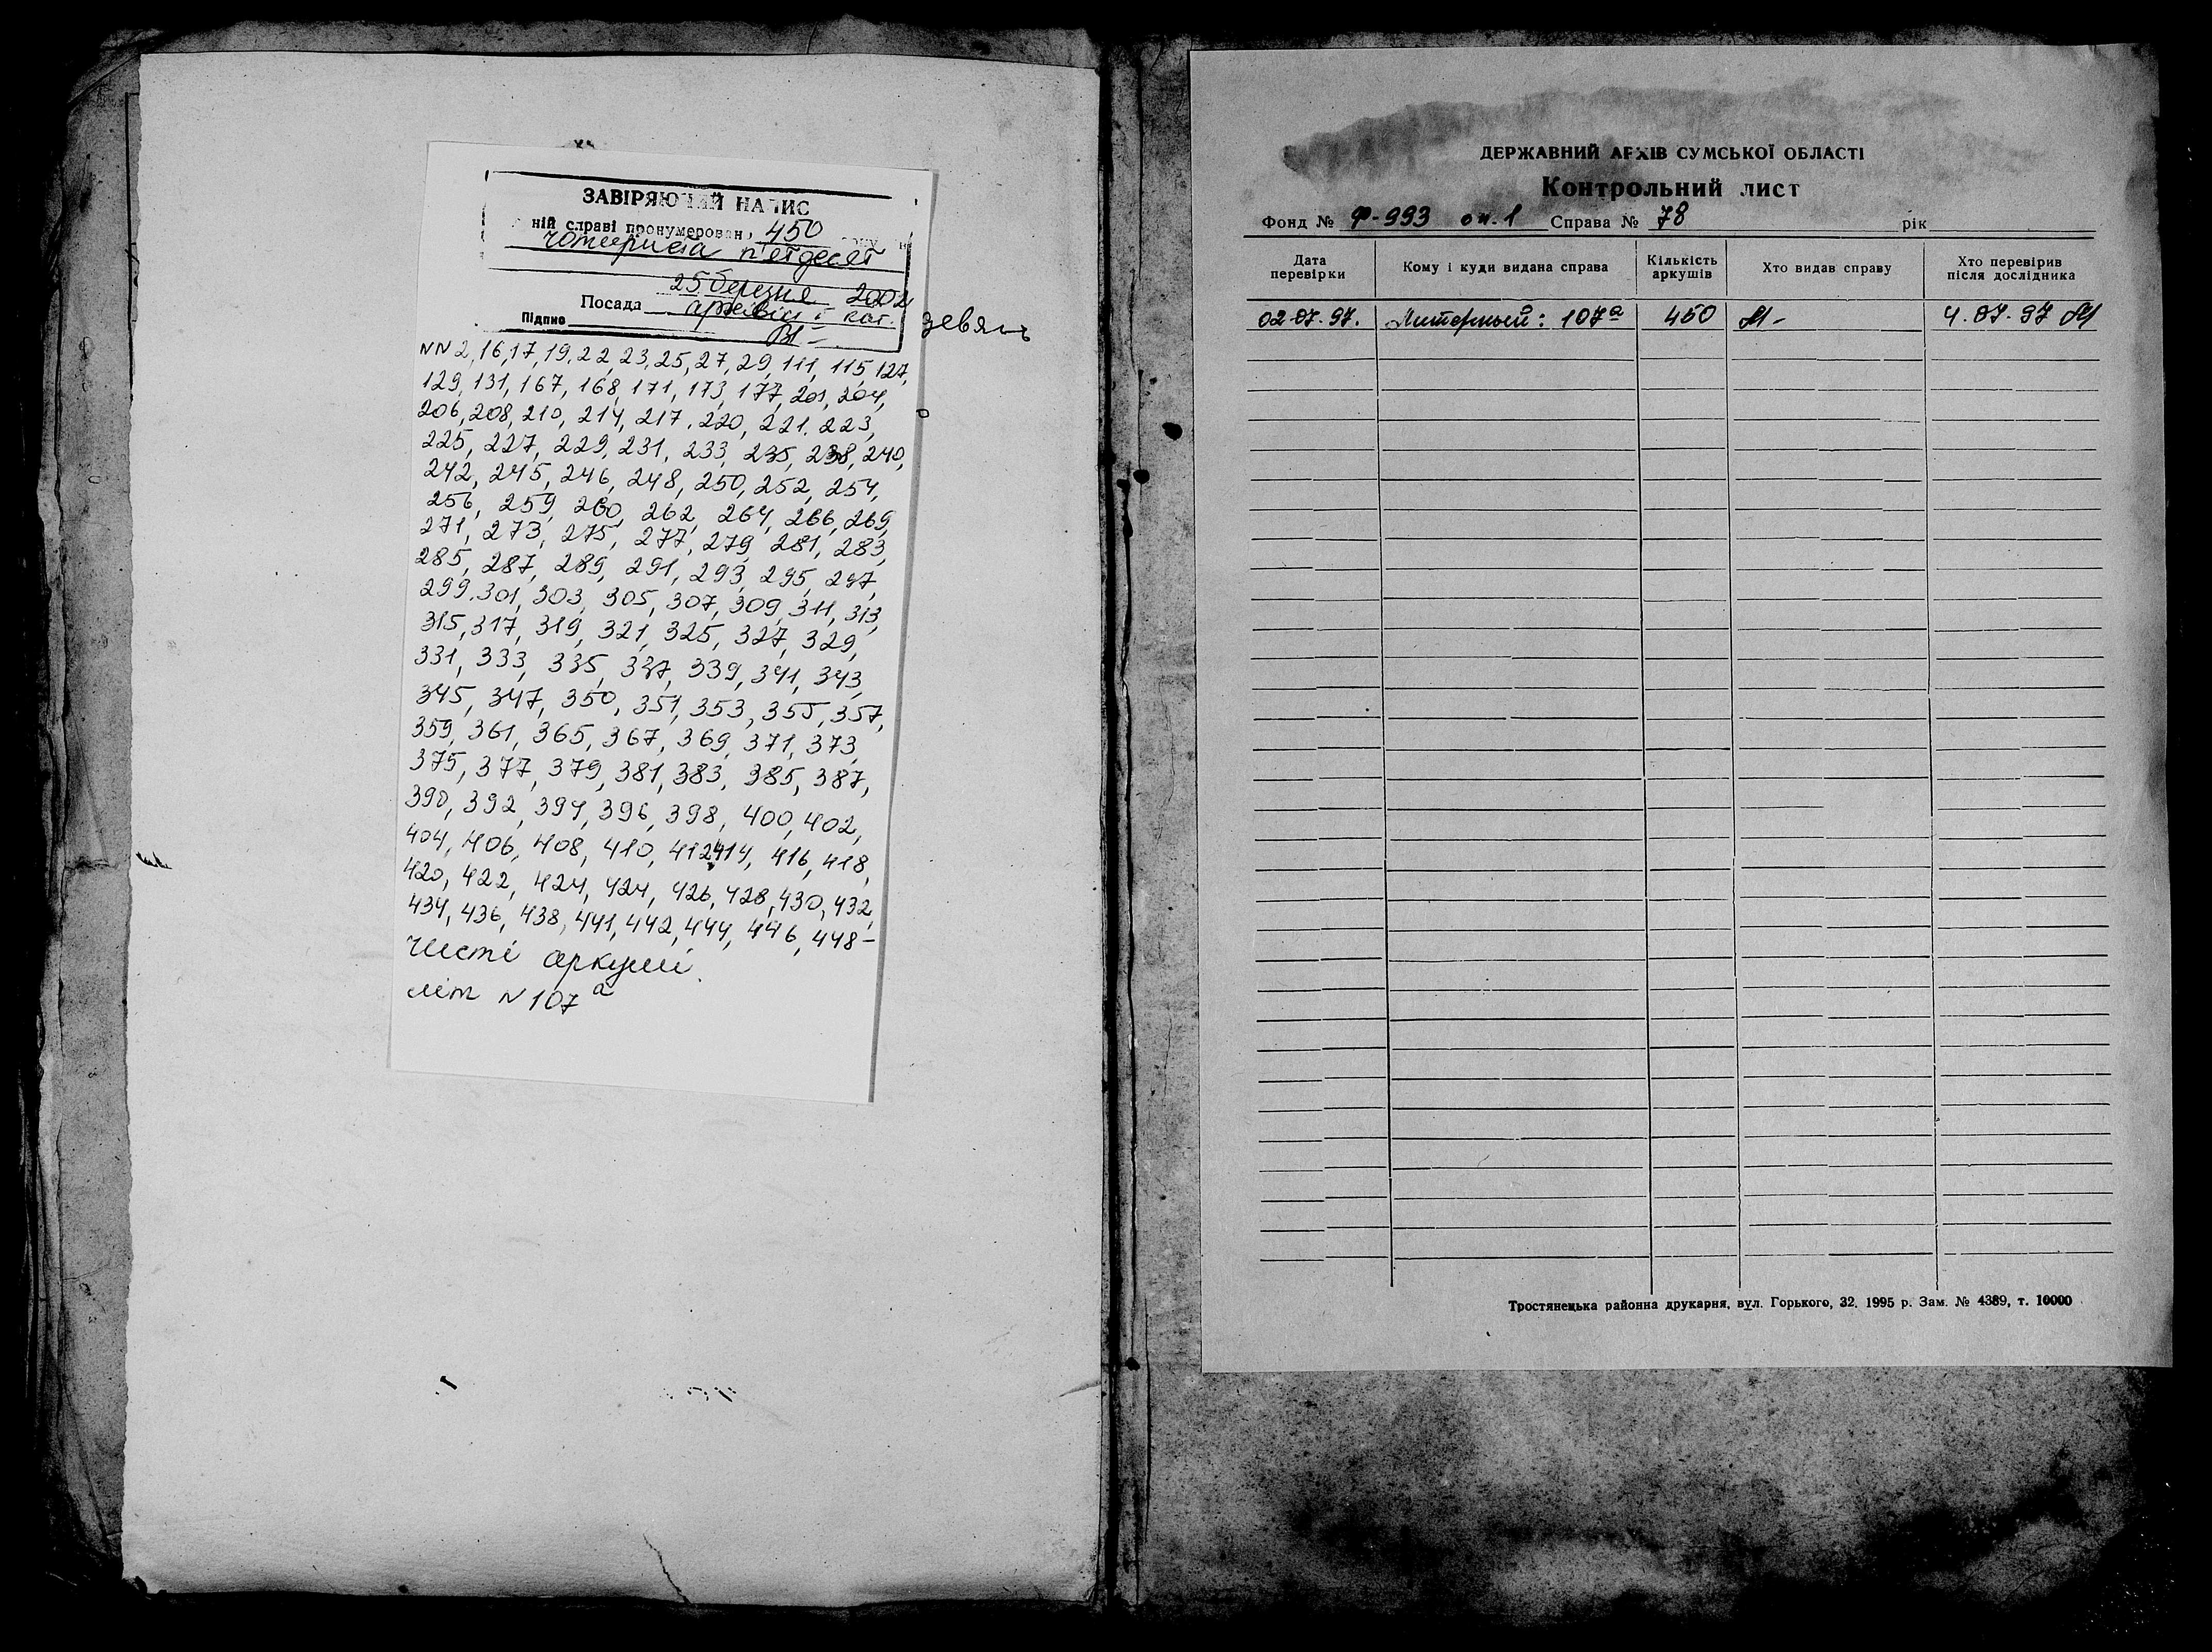 ЗАВІРЯЮЧИЙ НАПИС
ній справі пронумерован 450
чотириста п'ятдесят
25 березня 2002
Посада архівіст І кат.
Підпис
NN 2, 16, 17, 19, 22, 23, 25, 27, 29, 111, 115, 127,
129, 131, 167, 168, 171, 173, 177, 201, 204,
206, 208, 210, 214, 217, 220, 221, 223,
225, 227, 229, 231, 233, 235, 238, 240,
242, 245, 246, 248, 250, 252, 254,
256, 259, 260, 262, 264, 266, 269,
271, 273, 275, 277, 279, 281, 283,
285, 287, 289, 291, 293, 295, 297,
299, 301, 303, 305, 307, 309, 311, 313,
315, 317, 319, 321, 325, 327, 329,
331, 333, 335, 337, 339, 341, 343,
345, 347, 350, 351, 353, 355, 357,
359, 361, 365, 367, 369, 371, 373,
375, 377, 379, 381, 383, 385, 387,
390, 392, 394, 396, 398, 400, 402,
404, 406, 408, 410, 412, 414, 416, 418,
420, 422, 424, 424, 426, 428, 430, 432,
434, 436, 438, 441, 442, 444, 446, 448 –
чисті аркуші.
літ N 107а
ДЕРЖАВНИЙ АРХІВ СУМСЬКОЇ ОБЛАСТІ
Контрольний лист
Фонд № Ф-993 оп. 1 Справа № 78 рік
Дата перевірки Кому і куди видана справа Кількість аркушів Хто видав справу Хто перевірив після дослідника
02.07.97. Литерный: 107а 450 4.07.97
Тростянецька районна друкарня, вул. Горького, 32. 1995 р. Зам. № 4389, т. 10000